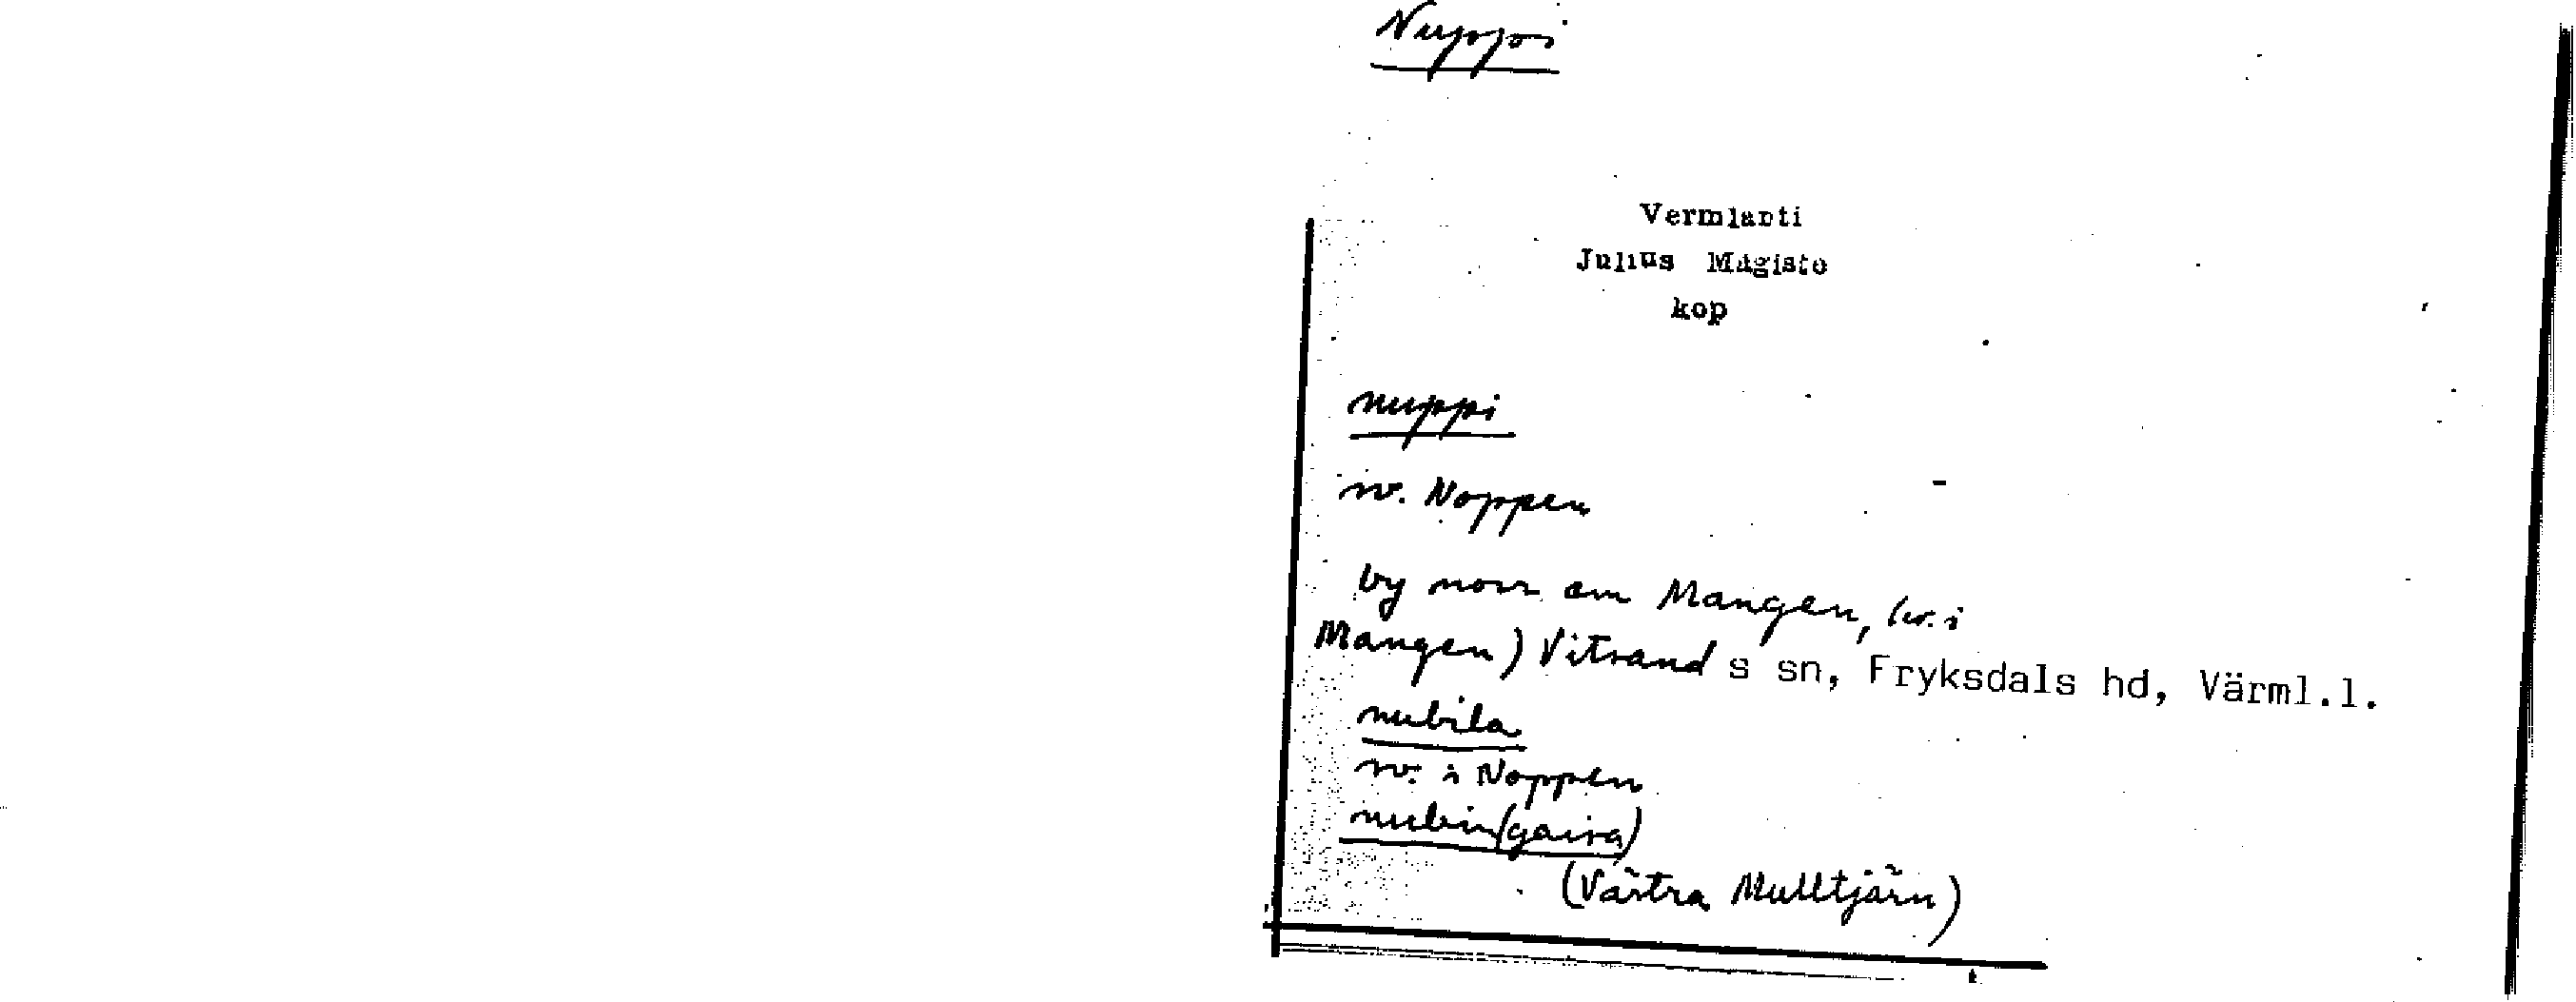 Nuppi
Vermlanti
Julius Mägiste
kop
nuppi
sv. Noppen
by norr om Mangen, (sv. i
Mangen) Vitsand s sn, Fryksdals hd, Värml.l.
nubila
sv. i Noppen
nubin(gaira)
(Västra Mulltjärn)